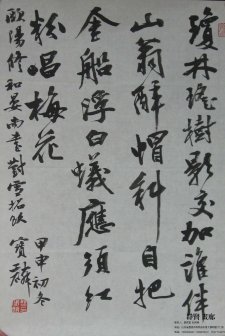 瓊林瑤樹影交加誰伴
山翁醉帽斜自把
金船浮白蟻應須紅
粉唱梅花
歐陽修和晏尚書對雪招飲
甲申初冬
寶麟